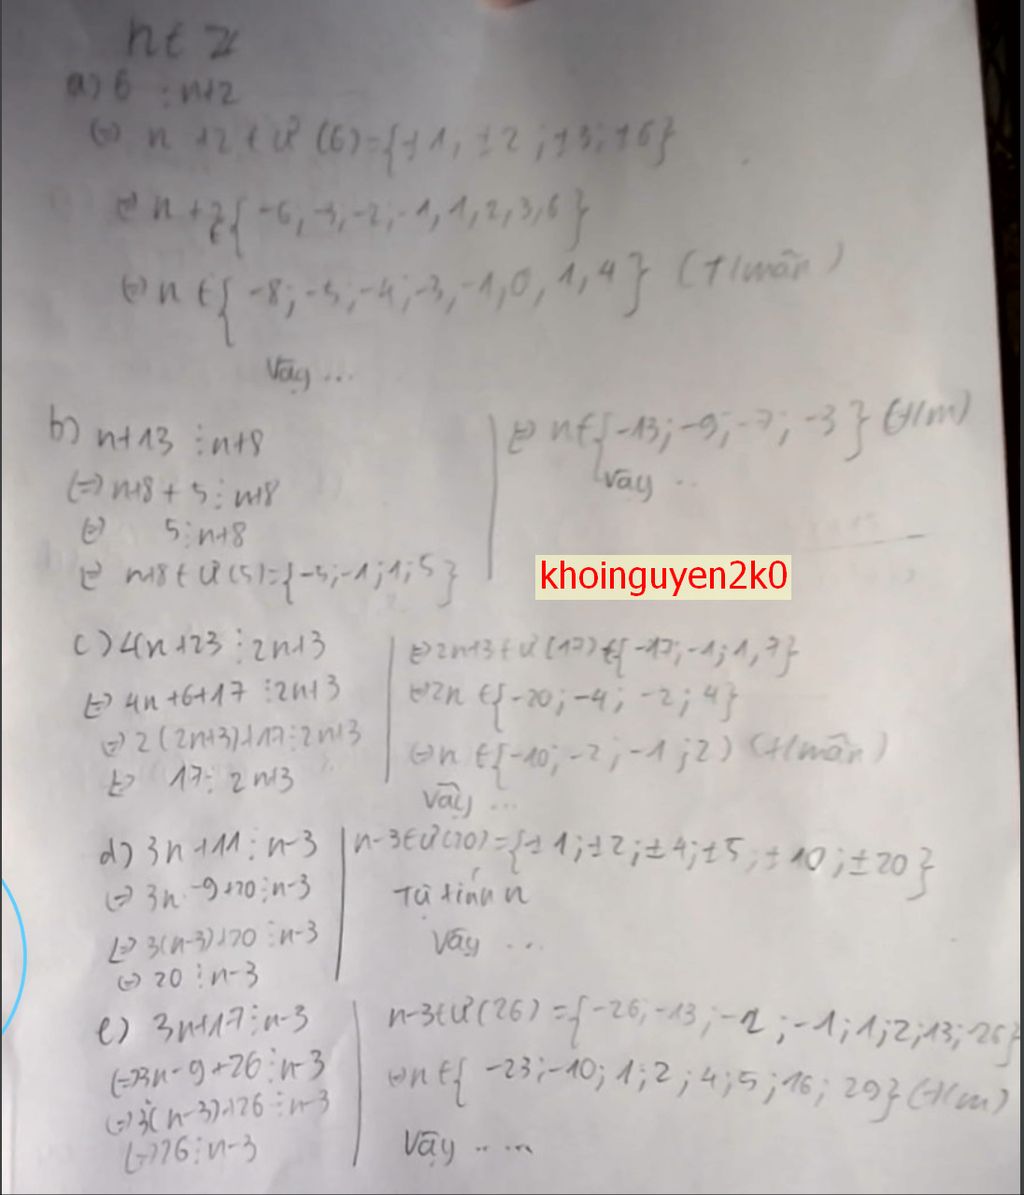 n ∈ Z
a) 6 ⋮ n+2
(=) n+2 ∈ Ư(6)={±1, ±2; ±3; ±6}
(=) n+2 ∈ { -6, -3, -2, -1, 1, 2, 3, 6 }
(=) n ∈ { -8; -5; -4; -3, -1, 0, 1, 4 } (t/mãn)
Vậy ...
b) n+13 ⋮ n+8
(=) n+8 + 5 ⋮ n+8
(=) 5 ⋮ n+8
(=) n+8 ∈ Ư(5)={-5;-1;1;5}
(=) n ∈ {-13; -9; -7; -3} (t/m)
Vậy ..
khoinguyen2k0
c) 4n+23 ⋮ 2n+3
(=) 4n+6+17 ⋮ 2n+3
(=) 2(2n+3)+17 ⋮ 2n+3
(=) 17 ⋮ 2n+3
(=) 2n+3 ∈ Ư(17) ∈ {-17; -1; 1, 7}
(=) 2n ∈ {-20; -4; -2; 4}
(=) n ∈ {-10; -2; -1; 2) (t/mãn)
Vậy ...
d) 3n+11 ⋮ n-3
(=) 3n -9+20 ⋮ n-3
(=) 3(n-3)+20 ⋮ n-3
(=) 20 ⋮ n-3
n-3 ∈ Ư(20)={±1; ±2; ±4; ±5; ±10; ±20}
Tự tính n
Vậy ...
e) 3n+17 ⋮ n-3
(=) 3n-9+26 ⋮ n-3
(=) 3(n-3)+26 ⋮ n-3
(=) 26 ⋮ n-3
n-3 ∈ Ư(26) = {-26; -13; -2; -1; 1; 2; 13; 26}
(=) n ∈ { -23; -10; 1; 2; 4; 5; 16; 29} (t/m)
Vậy .. ...